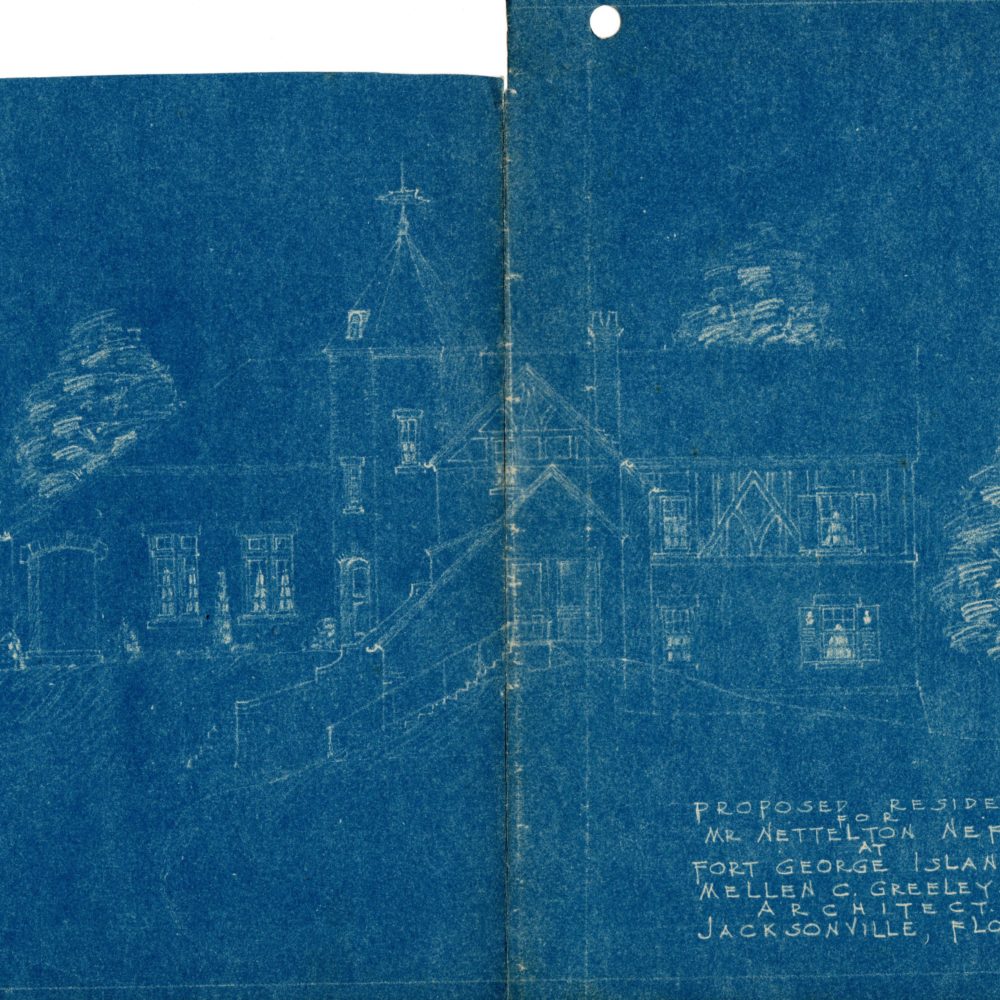 PROPOSED RESIDE
FOR
MR NETTELTON NEF
AT
FORT GEORGE ISLAN
MELLEN C. GREELEY
ARCHITECT.
JACKSONVILLE, FLO